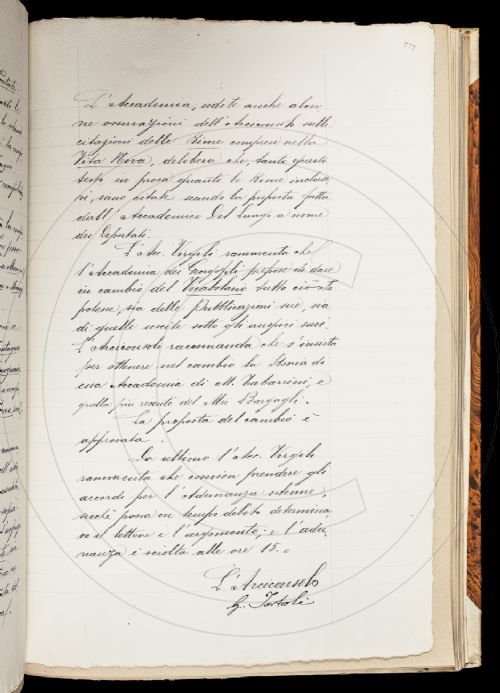 L'Accademia, udite anche alcu
ne osservazioni dell'Arciconsolo sulle
citazioni delle Rime comprese nella
Vita Nova, delibera che, tanto questo
testo in prosa quanto le Rime inclusе
vi, sano citate secondo la proposta fatta
dall'Accademico Del Lungo a nome
dei Deputati.
L'Acc. Virgili rammenta che
l'Accademia dei Georgofili propose di dare
in cambio del Vocabolario tutto ciò che
potesse, sia delle Pubblicazioni sue, sia
di quelle uscite sotto gli auspici suoi.
L'Arciconsolo raccomanda che s'insista
per ottenere nel cambio la Storia di
essa Accademia di M. Tabarrini, e
quella più recente del Mse Bargagli.
La proposta del cambio è
approvata.
Da ultimo l'Acc. Virgili
rammenta che conviene prendere gli
accordi per l'Adunanza solenne,
sicchè possa in tempo debito determina
re il lettore e l'argomento; e l'adu-
nanza è sciolta alle ore 15.
L'Arciconsolo
G. Tortoli